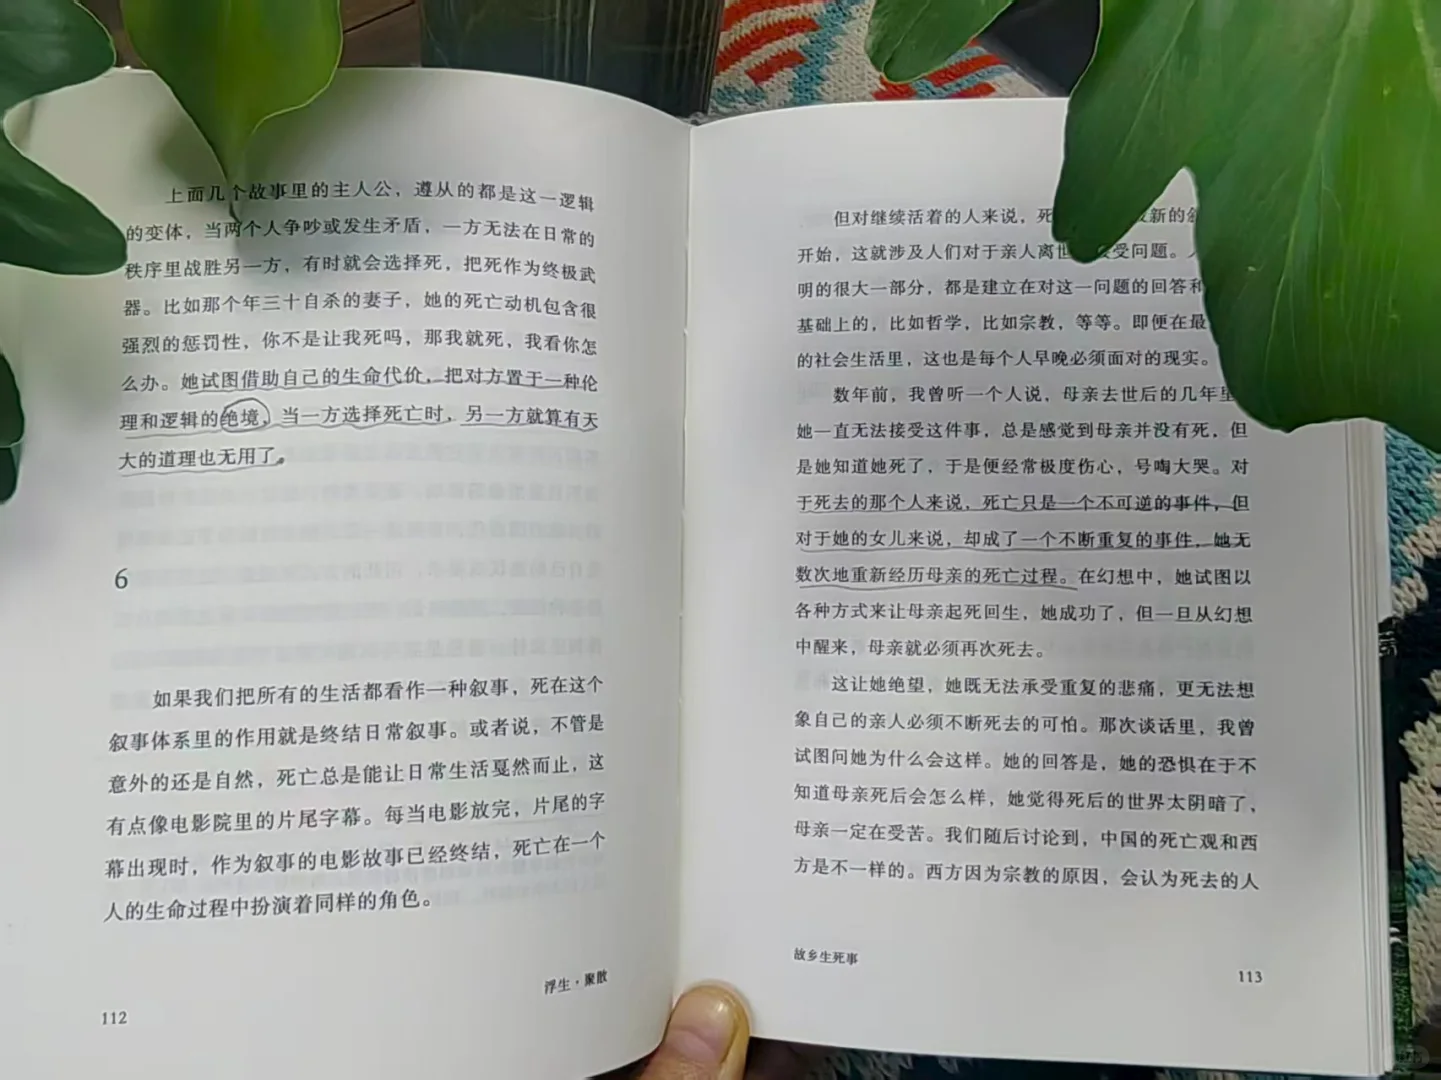 上面几个故事里的主人公，遵从的都是这一逻辑
的变体，当两个人争吵或发生矛盾，一方无法在日常的
秩序里战胜另一方，有时就会选择死，把死作为终极武
器。比如那个年三十自杀的妻子，她的死亡动机包含很
强烈的惩罚性，你不是让我死吗，那我就死，我看你怎
么办。她试图借助自己的生命代价，把对方置于一种伦
理和逻辑的绝境，当一方选择死亡时，另一方就算有天
大的道理也无用了。
6
如果我们把所有的生活都看作一种叙事，死在这个
叙事体系里的作用就是终结日常叙事。或者说，不管是
意外的还是自然，死亡总是能让日常生活戛然而止，这
有点像电影院里的片尾字幕。每当电影放完，片尾的字
幕出现时，作为叙事的电影故事已经终结，死亡在一个
人的生命过程中扮演着同样的角色。
浮生·聚散
112
但对继续活着的人来说，死 新的
开始，这就涉及人们对于亲人离世 受问题。
明的很大一部分，都是建立在对这一问题的回答和
基础上的，比如哲学，比如宗教，等等。即便在最
的社会生活里，这也是每个人早晚必须面对的现实。
数年前，我曾听一个人说，母亲去世后的几年里
她一直无法接受这件事，总是感觉到母亲并没有死，但
是她知道她死了，于是便经常极度伤心，号啕大哭。对
于死去的那个人来说，死亡只是一个不可逆的事件，但
对于她的女儿来说，却成了一个不断重复的事件，她无
数次地重新经历母亲的死亡过程。在幻想中，她试图以
各种方式来让母亲起死回生，她成功了，但一旦从幻想
中醒来，母亲就必须再次死去。
这让她绝望，她既无法承受重复的悲痛，更无法想
象自己的亲人必须不断死去的可怕。那次谈话里，我曾
试图问她为什么会这样。她的回答是，她的恐惧在于不
知道母亲死后会怎么样，她觉得死后的世界太阴暗了，
母亲一定在受苦。我们随后讨论到，中国的死亡观和西
方是不一样的。西方因为宗教的原因，会认为死去的人
故乡生死事
113